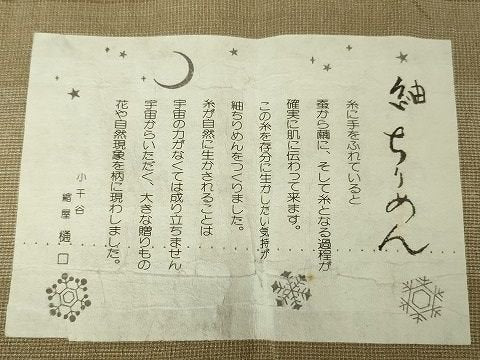 紬ちりめん
糸に手をふれていると
蚕から繭に、そして糸となる過程が
確実に肌に伝わって来ます。
この糸を存分に生かしたい気持が
紬ちりめんをつくりました。
糸が自然に生かされることは
宇宙の力がなくては成り立ちません
宇宙からいただく、大きな贈りもの
花や自然現象を柄に現わしました。
小千谷
繒屋 樋口